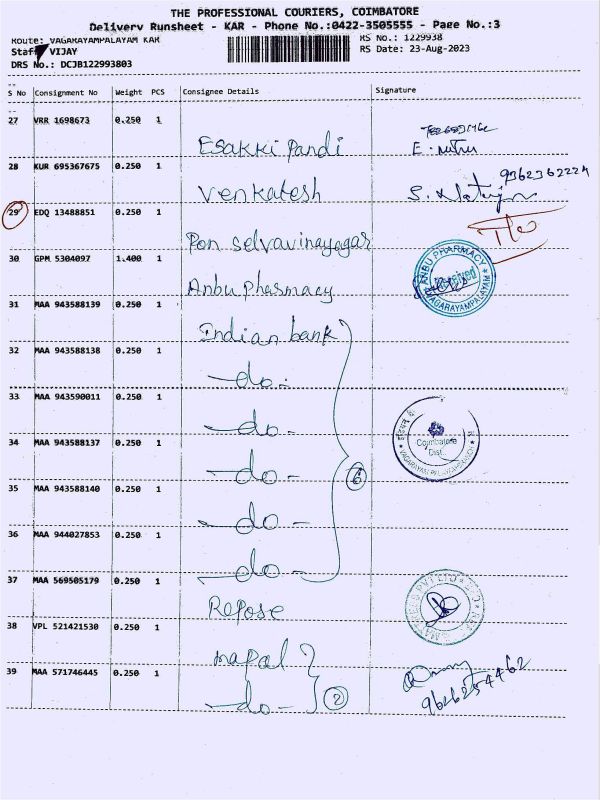 THE PROFESSIONAL COURIERS, COIMBATORE
Delivery Runsheet - KAR - Phone No.:0422-3505555 - Page No.:3
Route: VAGARAYAMPALAYAM KAR
RS No.: 1229938
Staff VIJAY
RS Date: 23-Aug-2023
DRS No.: DCJB122993803
S No Consignment No Weight PCS Consignee Details Signature
27 VRR 1698673 0.250 1
Esakki Pandi
28 KUR 695367675 0.250 1
Venkatesh 9362362224
29 EDQ 13488851 0.250 1
Pon. Selvavinayagar
30 GPM 5304097 1.400 1
Anbu Pharmacy
ANBU PHARMACY
Received
VAGARAYAMPALAYAM
31 MAA 943588139 0.250 1
Indian bank
32 MAA 943588138 0.250 1
-do-
33 MAA 943590011 0.250 1
-do-
34 MAA 943588137 0.250 1
-do- 6
Coimbatore
Dist.
35 MAA 943588140 0.250 1
-do-
36 MAA 944027853 0.250 1
-do-
37 MAA 569505179 0.250 1
Repose
38 VPL 521421530 0.250 1
39 MAA 571746445 0.250 1
-do- 2
9626254462